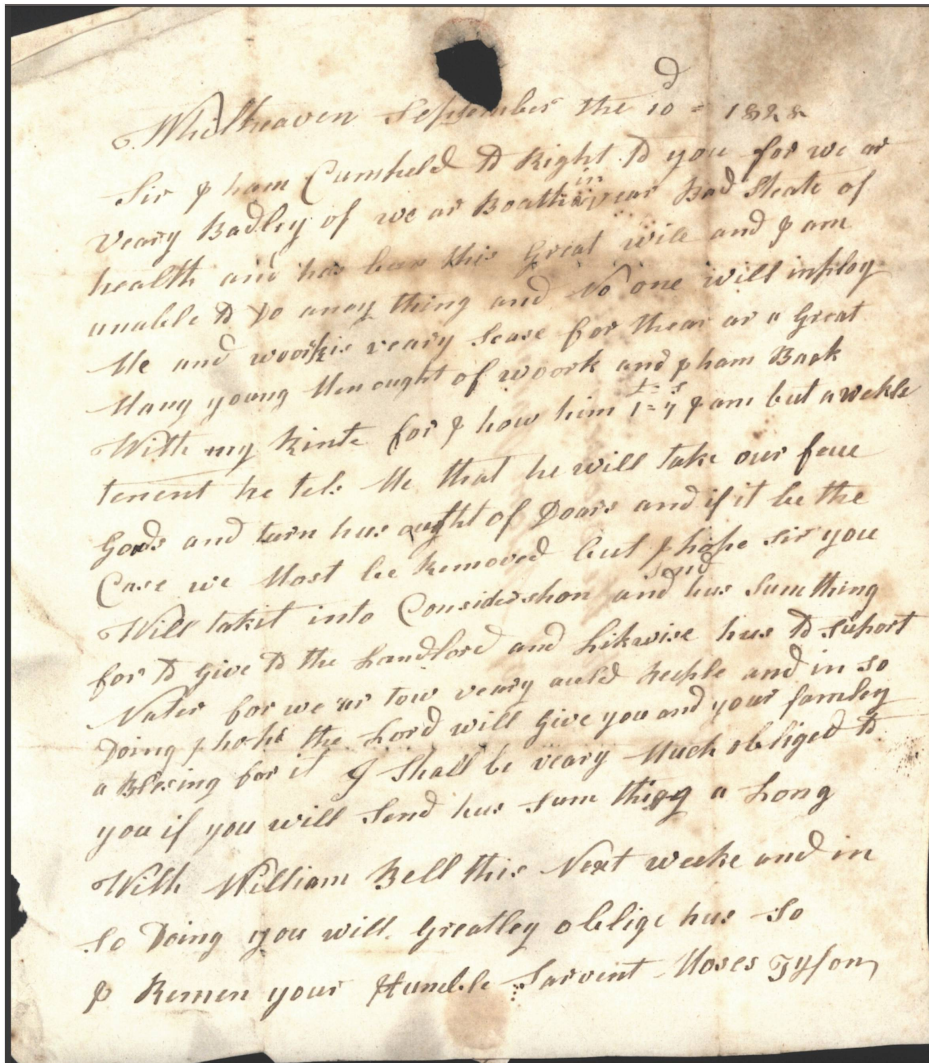 Whithaven September the 10d = 1828
Sir I ham Cumheld to Right to you for we ar
veary Badley of we ar Boath in vear Bad Steate of
health and has bean this great wile and I am
unable to Do aney thing and No one will imploy
Me and woork is veary scase for thear ar a Great
Many young Men ought of woork and I ham Back
With my Rinte for I how him £1=7s I am but a wekle
tenent he tels Me that he will take our feue
Gods and turn hus ought of Doars and if it be the
Case we Most be Removed but I hope sir you
Will takit into Considershon and send hus sumthing
for to give to the Landlord and Likwise hus to suport
Nater for we ar tow veary auld peple and in so
Doing I hope the Lord will Give you and your famley
a Blesing for it I Shall be veary Much obliged to
you if you will Send hus sum thing a Long
With William Bell this Next weeke and in
so Doing you will Greatley oblige hus So
I Remen your Humble Sarvent Moses Tyson